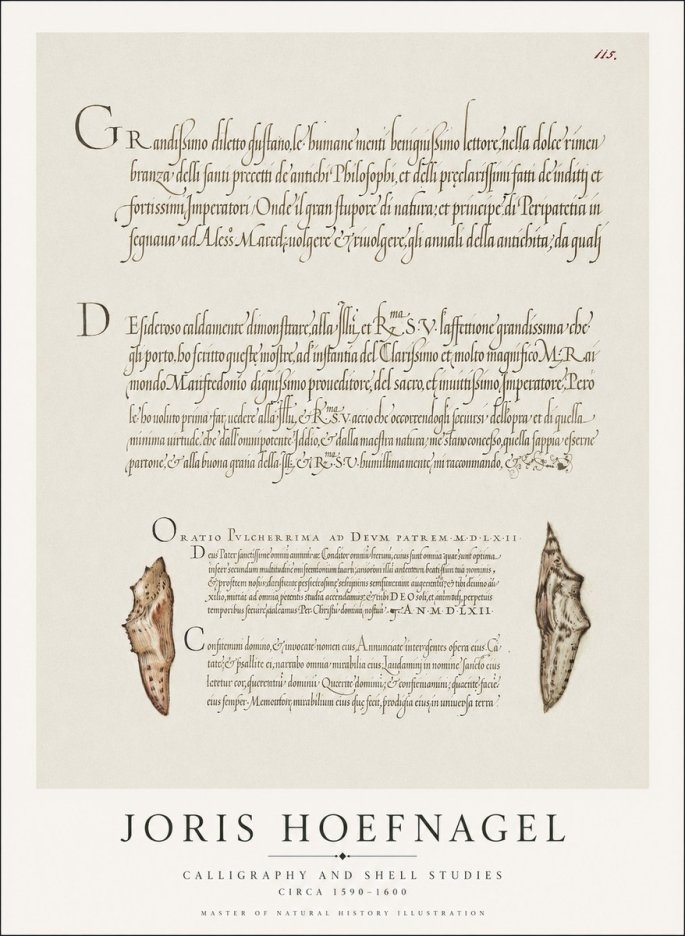 115.
GRandissimo diletto gustano, le humane menti benignissimo lettore, nella dolce rimen
branza delli santi precetti de antichi Philosophi, et delli preclarissimi fatti de inditti et
fortissimi Imperatori Onde il gran stupore di natura: et principe di Peripatetia in
segnaua ad Aless.º Maced. uolgere & riuolgere, gli annali della antichita, da quali
DEsideroso caldamente dimonstrare, alla Illu. et R.ma S. V. l'affettione grandissima che
gli porto, ho scritto queste mostre, ad instantia del Clarissimo et molto magnifico M. Rai
mondo dignissimo proueditore, del sacro, et inuittissimo Imperatore. Però
le ho uoluto prima far uedere alla Illu. & R.ma S. V. accio che occorrendogli seruirsi dell'opra et di quella
minima uirtude, che dall'omnipotente Iddio, & dalla maestra natura, me stato concesso, quella sappia esserne
partone, & alla buona gratia della Ill. & R.ma S. V. humillimamente, mi raccommando, &
ORATIO PVLCHERRIMA AD DEVM PATREM. M.D.LXII.
Deus Pater sanctissime omnium Conditor omnium rerum, cuius sunt omnia quae sunt optima
infer secundum multitudinem beatissimi tui nominis,
& nosis
xilio, ad omnia, potentis studia accendamus, & tibi DEO soli, et perpetuis
temporibus seruire ualeamus. Per Christu dominu nostru. AN. M D LXII.
Confitemini domino, & inuocate nomen eius, Annunciate inter gentes opera eius. Cã
tate, & psallite ei, narrabo omnia mirabilia eius, Laudamini in nomine sancto eius
letetur cor querentiu dominu Querite dominu, & confirmamini, querite facie
eius semper. Mementote mirabilium eius que fecit, prodigia eius, in uniuersa terra
JORIS HOEFNAGEL
CALLIGRAPHY AND SHELL STUDIES
CIRCA 1590–1600
MASTER OF NATURAL HISTORY ILLUSTRATION